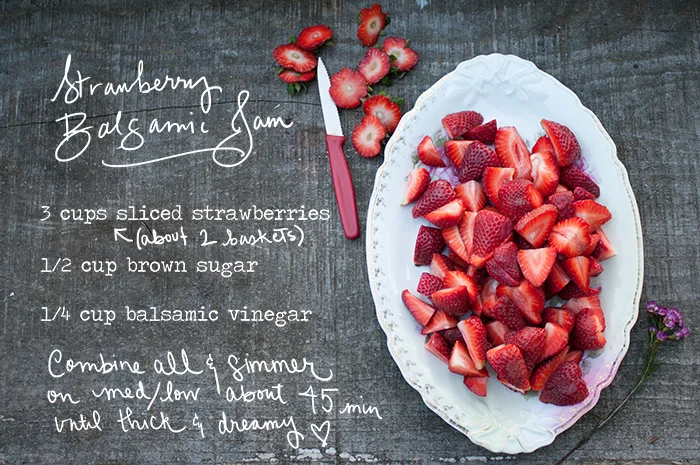 Strawberry
Balsamic Jam
3 cups sliced strawberries
(about 2 baskets)
1/2 cup brown sugar
1/4 cup balsamic vinegar
Combine all & simmer
on med/low about 45 min
until thick & dreamy